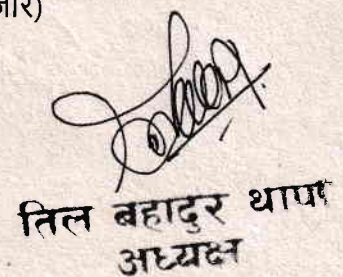 जार)
तिल बहादुर थापा
अध्यक्ष